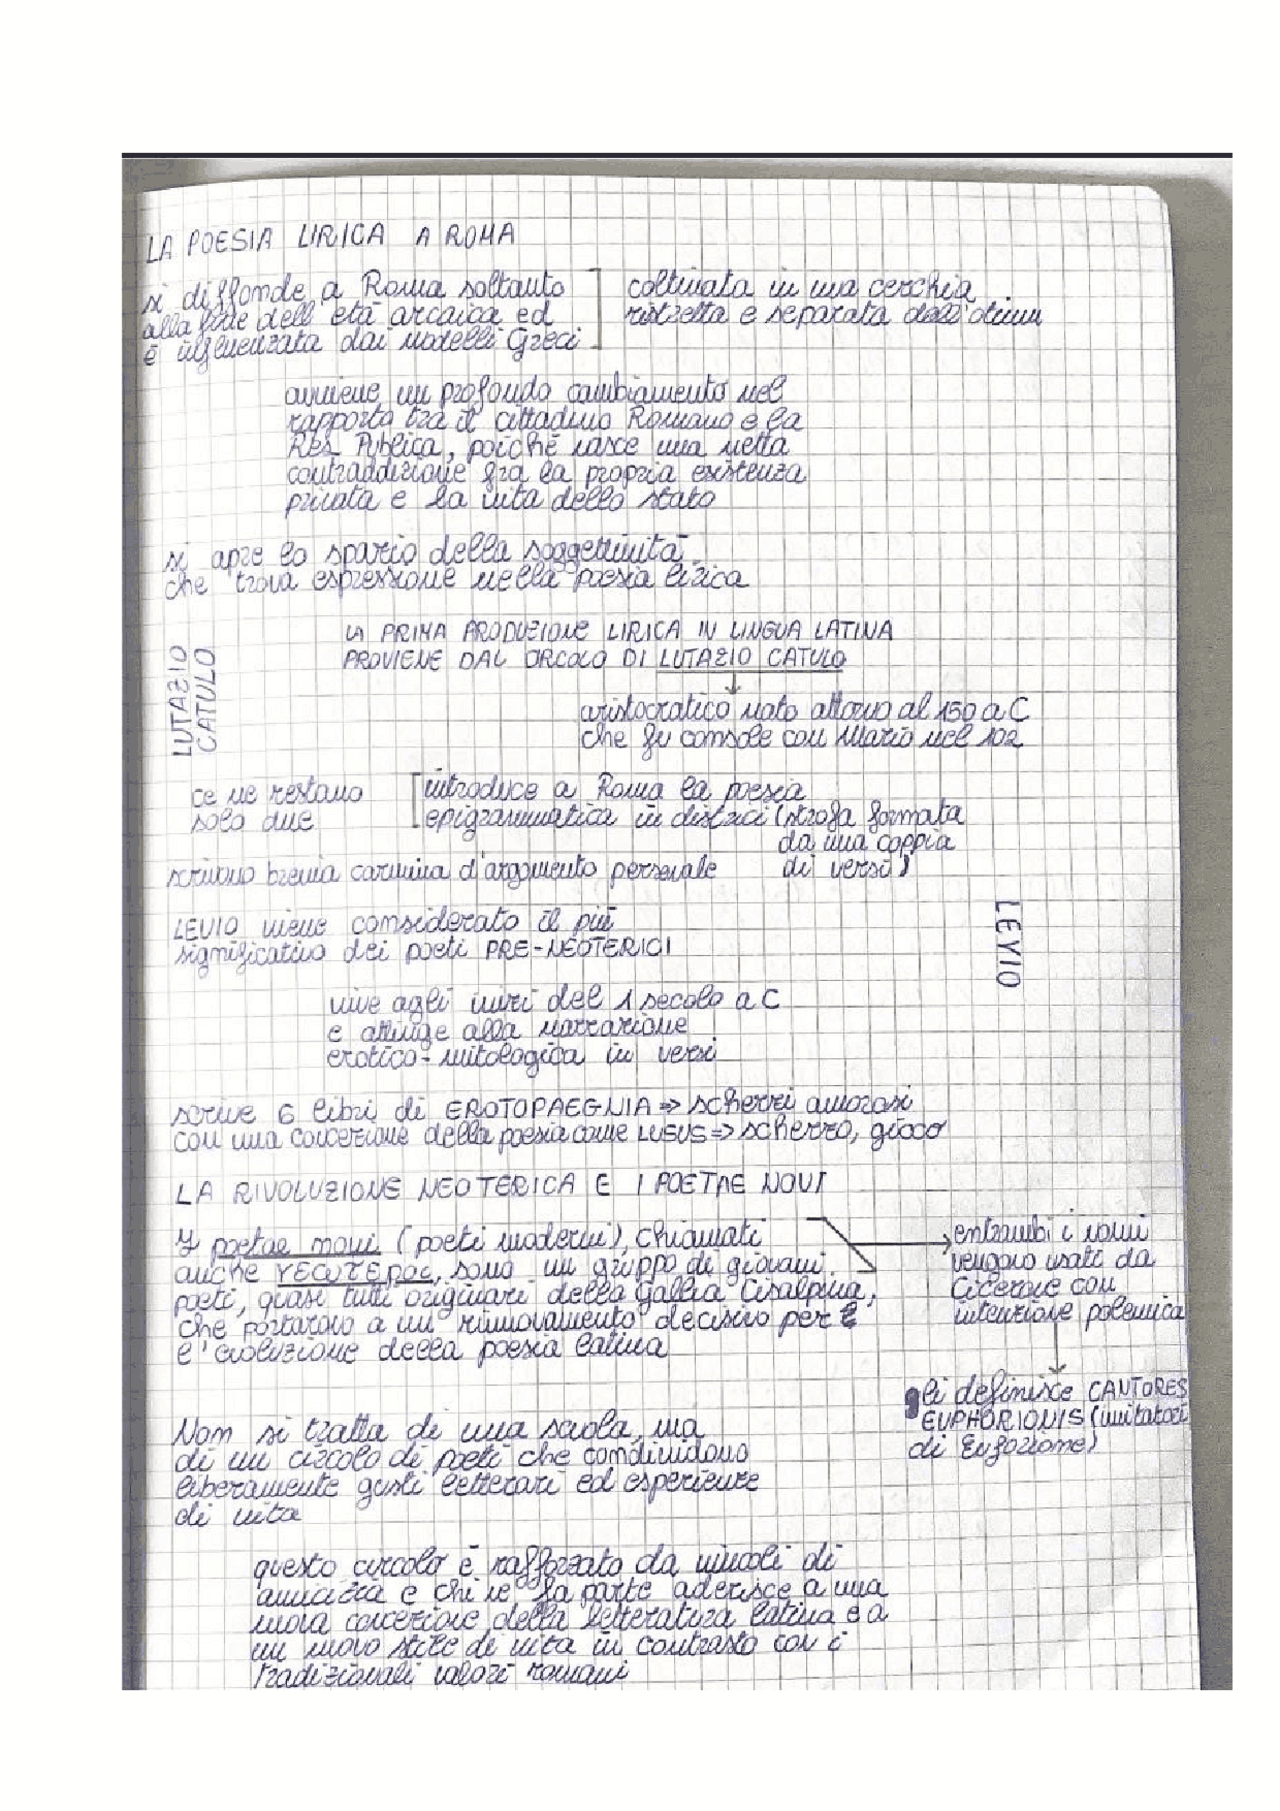 LA POESIA LIRICA A ROMA
si diffonde a Roma soltanto
alla fine dell'età arcaica ed
è influenzata dai modelli Greci
coltivata in una cerchia
ristretta e separata dall'otium
avviene un profondo cambiamento nel
rapporto tra il cittadino Romano e la
Res Publica, poiché nasce una netta
contraddizione fra la propria existenza
privata e la vita dello stato
si apre lo spazio della soggettività
che trova espressione nella poesia lirica
LA PRIMA PRODUZIONE LIRICA IN LINGUA LATINA
PROVIENE DAL CIRCOLO DI LUTAZIO CATULO
LUTAZIO
CATULO
aristocratico nato attorno al 150 a C
che fu console con Mario nel 102
ce ne restano
solo due
introduce a Roma la poesia
epigrammatica in distici (strofa formata
da una coppia
di versi)
scrivono brevia carmina d'argomento personale
LEVIO viene considerato il più
significativo dei poeti PRE-NEOTERICI
LEVIO
vive agli inizi del 1 secolo a C
e attinge alla narrazione
erotico-mitologica in versi
scrive 6 libri di EROTOPAEGNIA ⇒ scherzi amorosi
con una concezione della poesia come LUSUS ⇒ scherzo, gioco
LA RIVOLUZIONE NEOTERICA E I POETAE NOVI
I poetae novi (poeti moderni), chiamati
anche , sono un gruppo di giovani
poeti, quasi tutti originari della Gallia Cisalpina,
che portarono a un rinnovamento decisivo per
l'evoluzione della poesia latina
entrambi i nomi
vengono usati da
Cicerone con
intenzione polemica
li definisce CANTORES
EUPHORIONIS (imitatori
di Euforione)
Non si tratta di una scuola, ma
di un circolo di poeti che condividono
liberamente gusti letterari ed esperienze
di vita
questo circolo è rafforzato da vincoli di
amicizia e chi ne fa parte aderisce a una
nuova concezione della letteratura latina e a
un nuovo stile di vita in contrasto con i
tradizionali valori romani